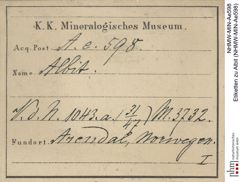 K. K. Mineralogisches Museum.
Acq. Post A. c. 598.
Name Albit.
V. B. N. 1043. a. (31/47) M. 3732.
Fundort: Arendal, Norwegen.
I
NHMW-MIN-Ae598
Etiketten zu Albit (NHMW-MIN-Ae598)
nhm